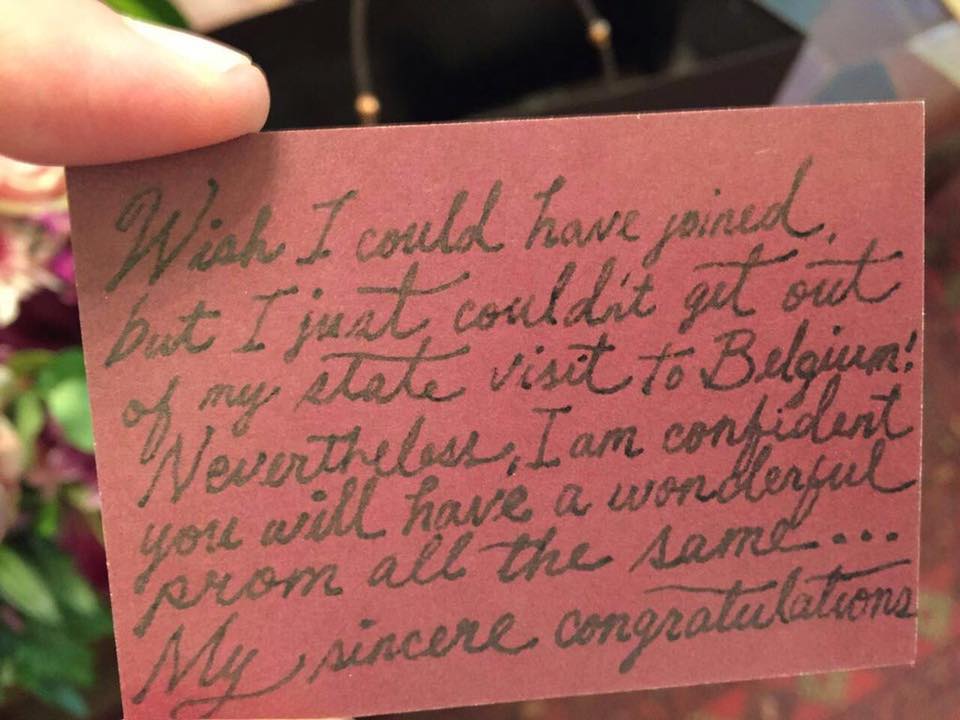 Wish I could have joined,
but I just couldn't get out
of my state visit to Belgium!
Nevertheless, I am confident
you will have a wonderful
prom all the same...
My sincere congratulations